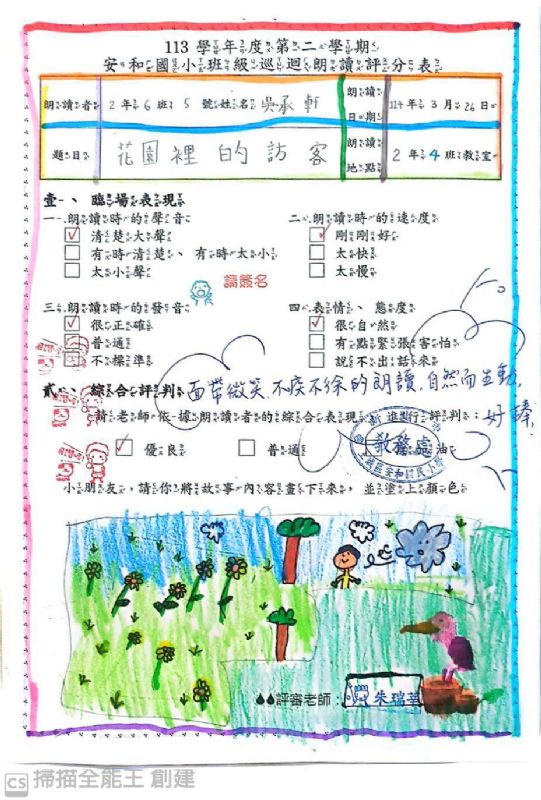 113 學年度第二學期
安和國小班級巡迴朗讀評分表
朗讀者 2年6班5號姓名吳承軒 朗讀日期 114年3月26日
題目 花園裡的訪客 朗讀地點 2年4班教室
壹、臨場表現
一、朗讀時的聲音 二、朗讀時的速度
✓ 清楚大聲 ✓ 剛剛好
有時清楚、有時太小 太快
太小聲 太慢
請簽名
三、朗讀時的發音 四、表情、態度
✓ 很正確 ✓ 很自然
普通 有點緊張害怕
不標準 說不出話來
貳、綜合評判 面帶微笑不疾不徐的朗讀,自然而生動,
請老師依據朗讀者的綜合表現 進行評判: 好棒!
✓ 優良 普通 油
教務處
小朋友,請你將故事內容畫下來,並塗上顏色。
評審老師: 朱瑞華
CS 掃描全能王 創建